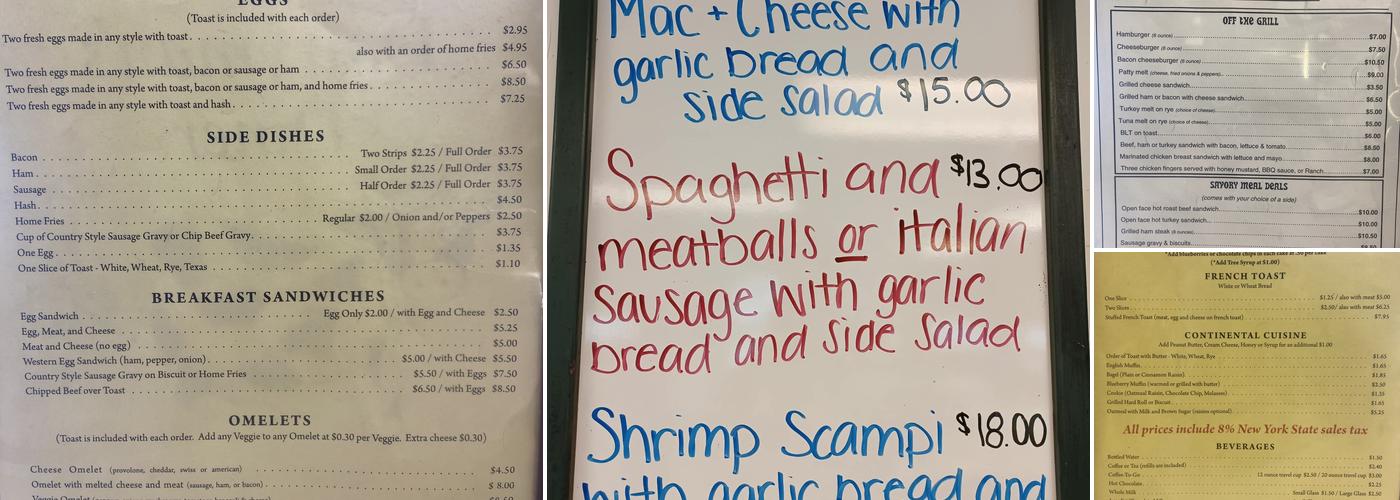 EGGS
(Toast is included with each order)
Two fresh eggs made in any style with toast $2.95
also with an order of home fries $4.95
Two fresh eggs made in any style with toast, bacon or sausage or ham $6.50
Two fresh eggs made in any style with toast, bacon or sausage or ham, and home fries $8.50
Two fresh eggs made in any style with toast and hash $7.25
SIDE DISHES
Bacon Two Strips $2.25 / Full Order $3.75
Ham Small Order $2.25 / Full Order $3.75
Sausage Half Order $2.25 / Full Order $3.75
Hash $4.50
Home Fries Regular $2.00 / Onion and/or Peppers $2.50
Cup of Country Style Sausage Gravy or Chip Beef Gravy $3.75
One Egg $1.35
One Slice of Toast - White, Wheat, Rye, Texas $1.10
BREAKFAST SANDWICHES
Egg Sandwich Egg Only $2.00 / with Egg and Cheese $2.50
Egg, Meat, and Cheese $5.25
Meat and Cheese (no egg) $5.00
Western Egg Sandwich (ham, pepper, onion) $5.00 / with Cheese $5.50
Country Style Sausage Gravy on Biscuit or Home Fries $5.50 / with Eggs $7.50
Chipped Beef over Toast $6.50 / with Eggs $8.50
OMELETS
(Toast is included with each order. Add any Veggie to any Omelet at $0.30 per Veggie. Extra cheese $0.30)
Cheese Omelet (provolone, cheddar, swiss or american) $4.50
Omelet with melted cheese and meat (sausage, ham, or bacon) $ 8.00
Mac + Cheese with
garlic bread and
side salad $15.00
Spaghetti and $13.00
meatballs or italian
sausage with garlic
bread and side salad
Shrimp Scampi $18.00
with garlic bread and
OFF THE GRILL
Hamburger (6 ounce) $7.00
Cheeseburger (6 ounce) $7.50
Bacon cheeseburger (6 ounce) $10.50
Patty melt (cheese, fried onions & peppers) $9.00
Grilled cheese sandwich $3.50
Grilled ham or bacon with cheese sandwich $6.50
Turkey melt on rye (choice of cheese) $5.00
Tuna melt on rye (choice of cheese) $5.00
BLT on toast $6.00
Beef, ham or turkey sandwich with bacon, lettuce & tomato $8.50
Marinated chicken breast sandwich with lettuce and mayo $8.00
Three chicken fingers served with honey mustard, BBQ sauce, or Ranch $7.00
SAVORY MEAL DEALS
(comes with your choice of a side)
Open face hot roast beef sandwich $10.00
Open face hot turkey sandwich $10.00
Grilled ham steak (8 ounces) $10.50
Sausage gravy & biscuits
(*Add Tree Syrup at $1.00)
FRENCH TOAST
White or Wheat Bread
One Slice $1.25 / also with meat $5.00
Two Slices $2.50 / also with meat $6.25
Stuffed French Toast (meat, egg and cheese on french toast) $7.95
CONTINENTAL CUISINE
Add Peanut Butter, Cream Cheese, Honey or Syrup for an additional $1.00
Order of Toast with Butter - White, Wheat, Rye $1.65
English Muffin $1.65
Bagel (Plain or Cinnamon Raisin) $1.85
Blueberry Muffin (warmed or grilled with butter) $2.50
Cookie (Oatmeal Raisin, Chocolate Chip, Molasses) $1.35
Grilled Hard Roll or Biscuit $1.65
Oatmeal with Milk and Brown Sugar (raisins optional) $5.25
All prices include 8% New York State sales tax
BEVERAGES
Bottled Water $1.50
Coffee or Tea (refills are included) $2.40
Coffee-To-Go 12 ounce travel cup $2.50 / 20 ounce travel cup $3.00
Hot Chocolate $2.25
Whole Milk Small Glass $1.50 / Large Glass $2.50